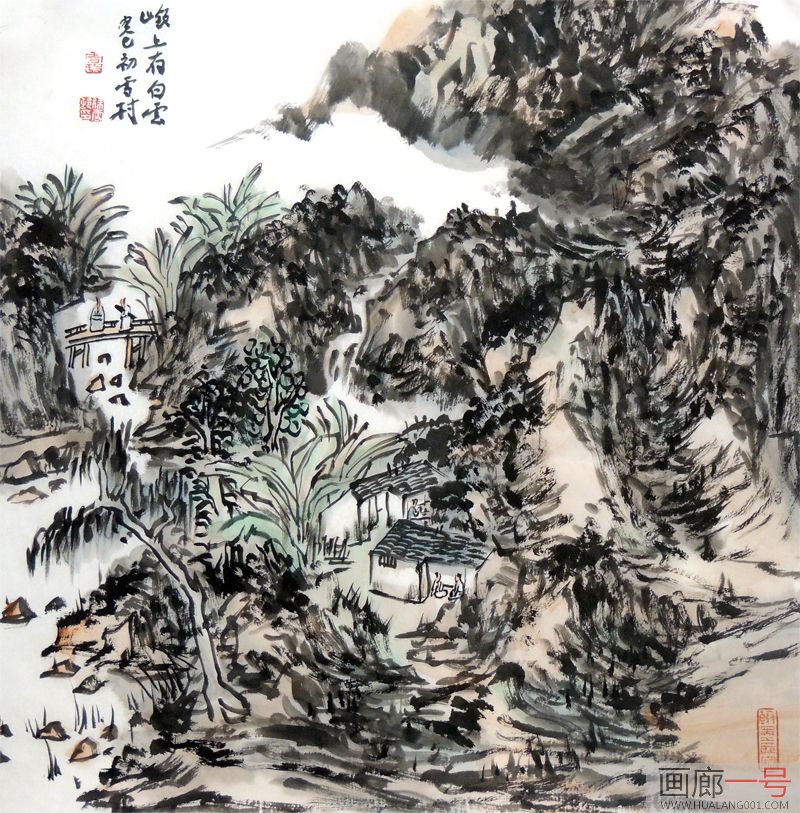 嶺上有白雲
癸巳初雪村
画廊一号
WWW.HUALANG001.COM